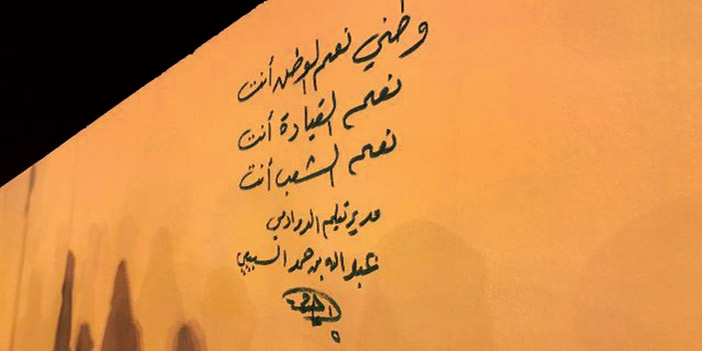 وطني نعم الوطن أنت
نعم القيادة أنت
نعم الشعب أنت
مدير تعليم الدوادمي
عبدالله بن حمد السبيعي